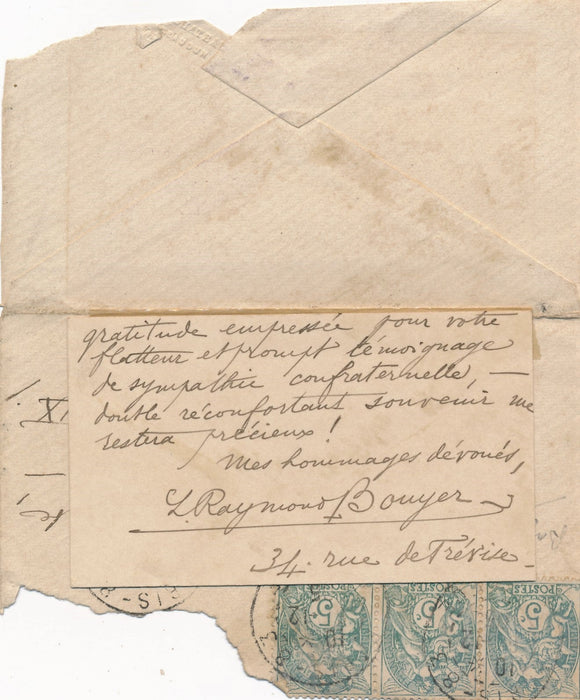 gratitude empressée pour votre
flatteur et prompt témoignage
de sympathie confraternelle, —
double réconfortant souvenir me
restera précieux!
Mes hommages dévoués,
L. Raymond Bouyer
34, rue de Trévise
XI
5
5
5
POSTES
POSTES